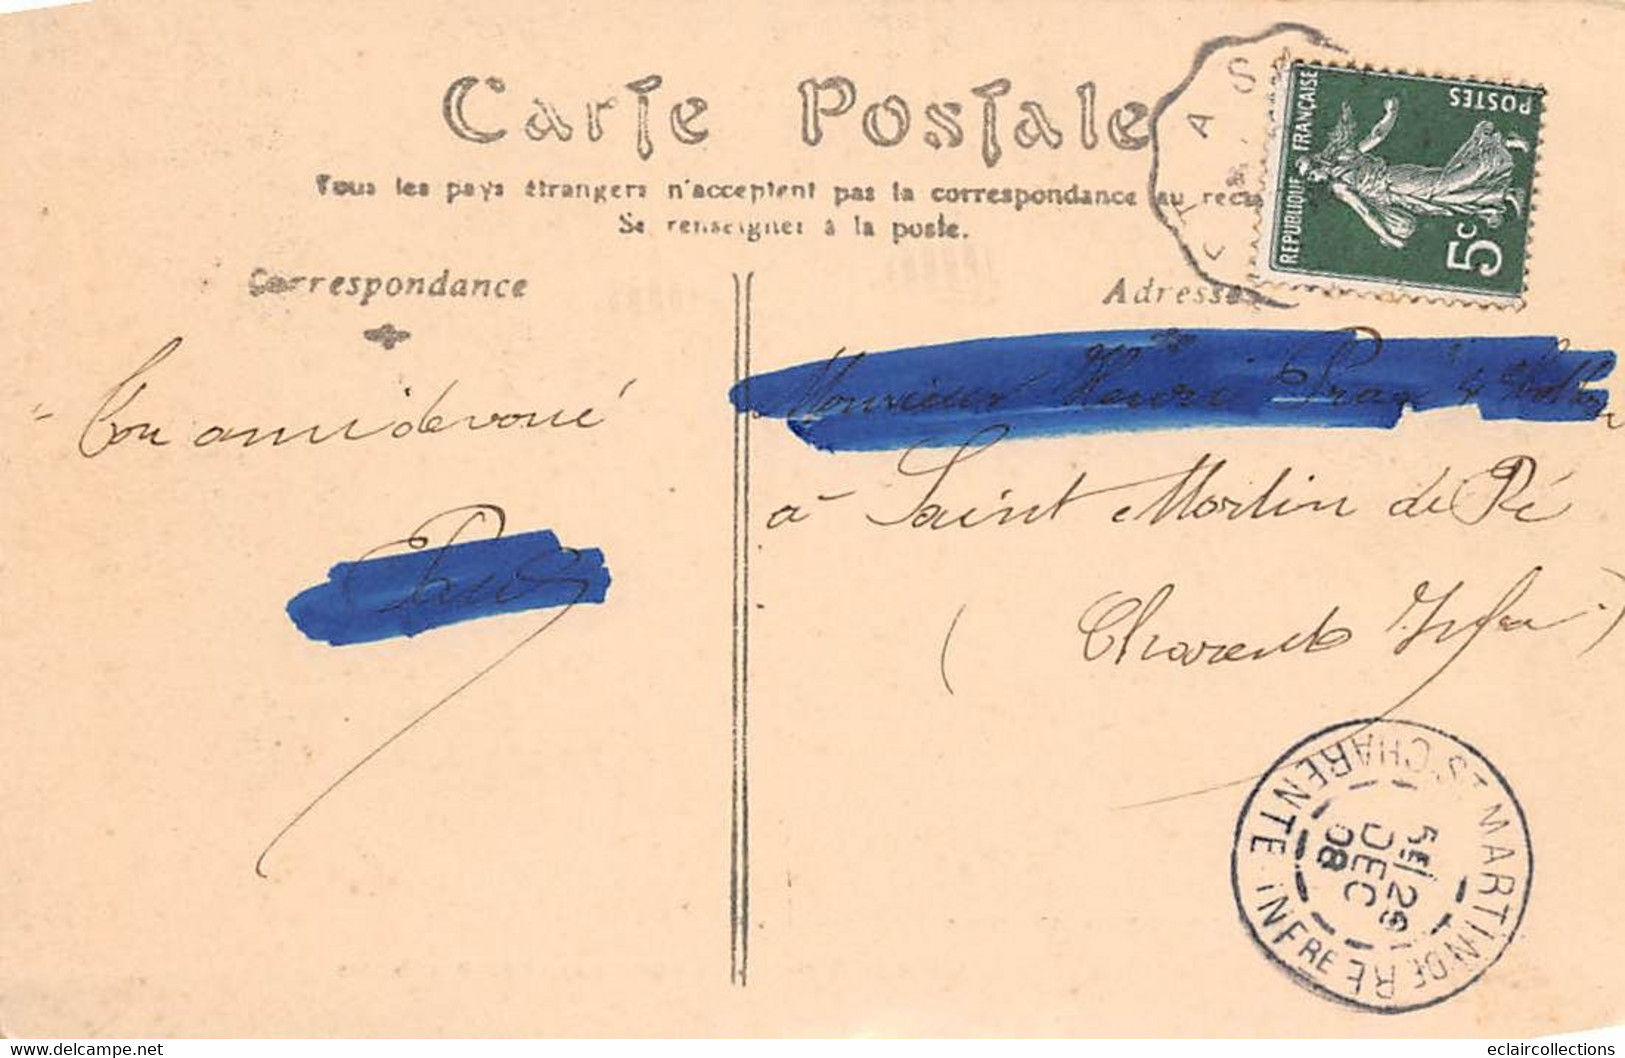 Carte Postale
Tous les pays étrangers n'acceptent pas la correspondance au recto
Se renseigner à la poste.
Correspondance
Adresse
REPUBLIQUE FRANÇAISE
POSTES
5c
Ton ami dévoué
Monsieur Henri
à Saint Martin de Ré
(Charente Infre)
ST MARTIN DE RÉ
CHARENTE INFRE
5E/29
DEC
08
www.delcampe.net
eclaircollections